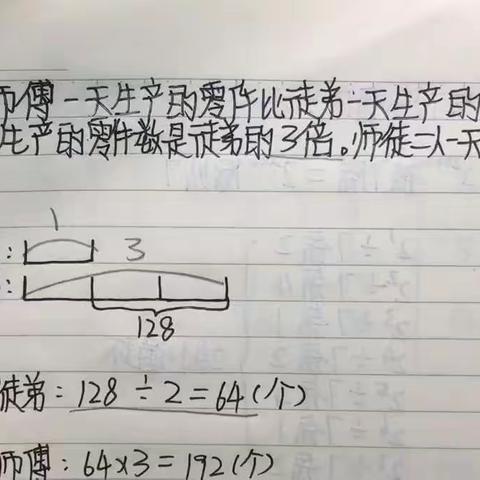 师傅一天生产的零件比徒弟一天生产的
生产的零件数是徒弟的3倍。师徒二人一天
1
: 3
:
128
徒弟：128÷2=64(个)
师傅：64×3=192(个)